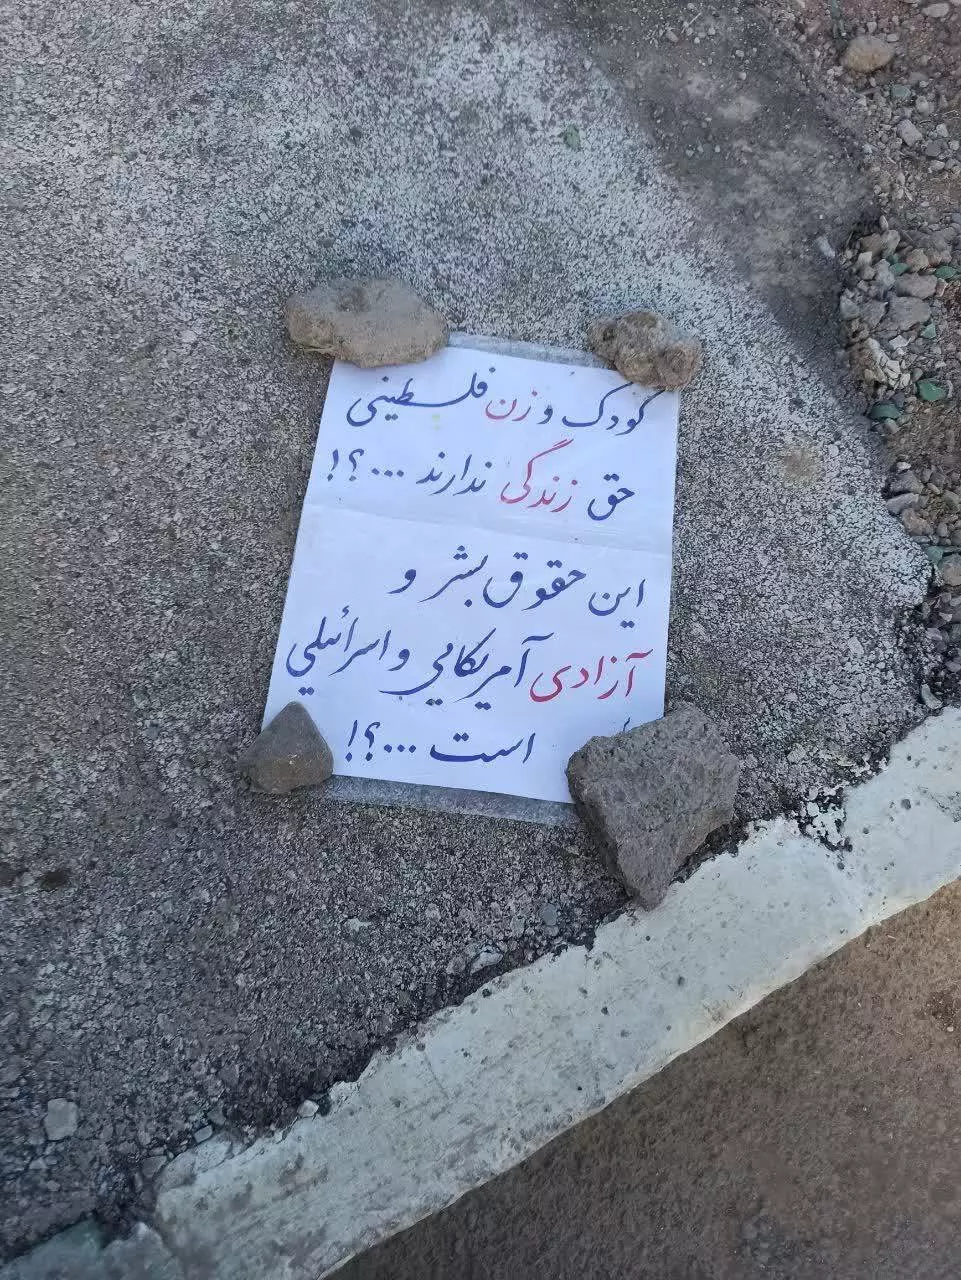 کودک و زن فلسطینی
حق زندگی ندارند ...؟!
این حقوق بشر و
آزادی آمریکایی و اسرائیلی
است ...؟!